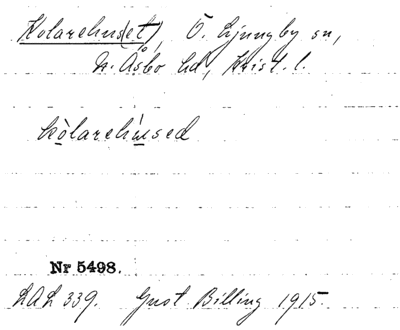 Kolarehus(et), Ö. Ljungby sn,
N. Åsbo hd, Krist. l.
kòlarehùsed
Nr 5498.
LAL 339. Gust Billing 1915.